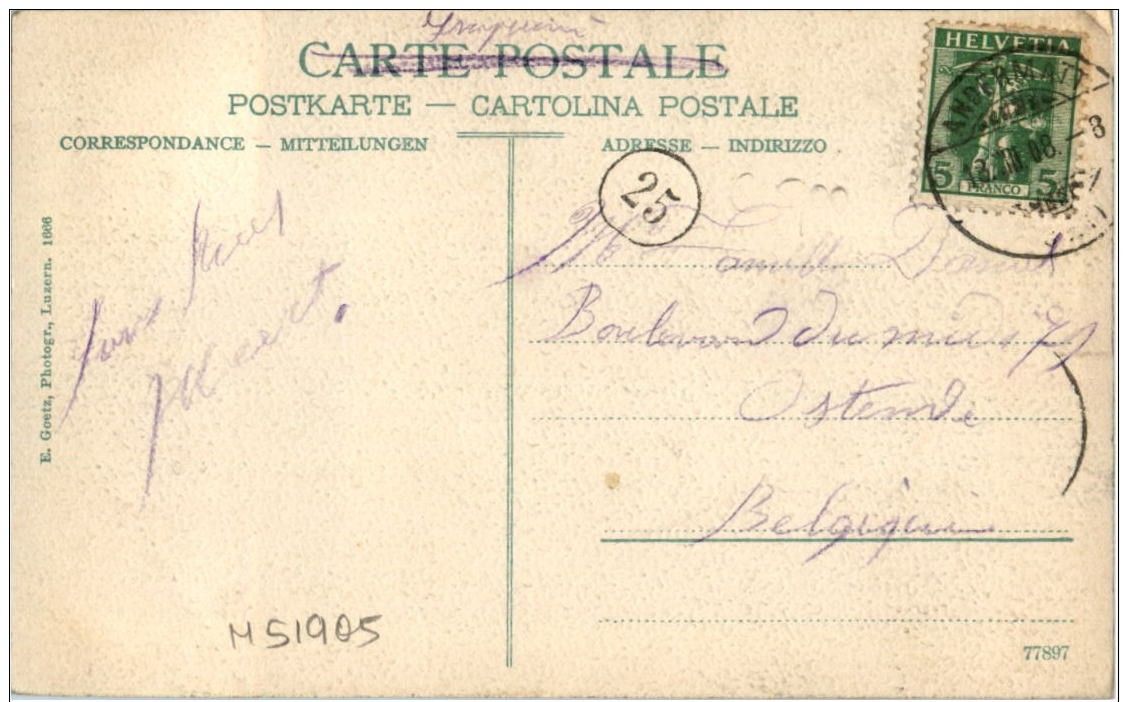 CARTE POSTALE
POSTKARTE — CARTOLINA POSTALE
CORRESPONDANCE — MITTEILUNGEN
ADRESSE — INDIRIZZO
HELVETIA
5 FRANCO 5
ANDERMATT
III 08 - 8
25
E. Goetz, Photogr., Luzern. 1666
Daniel
Boulevard du midi
Ostende
Belgique
MS1905
77897